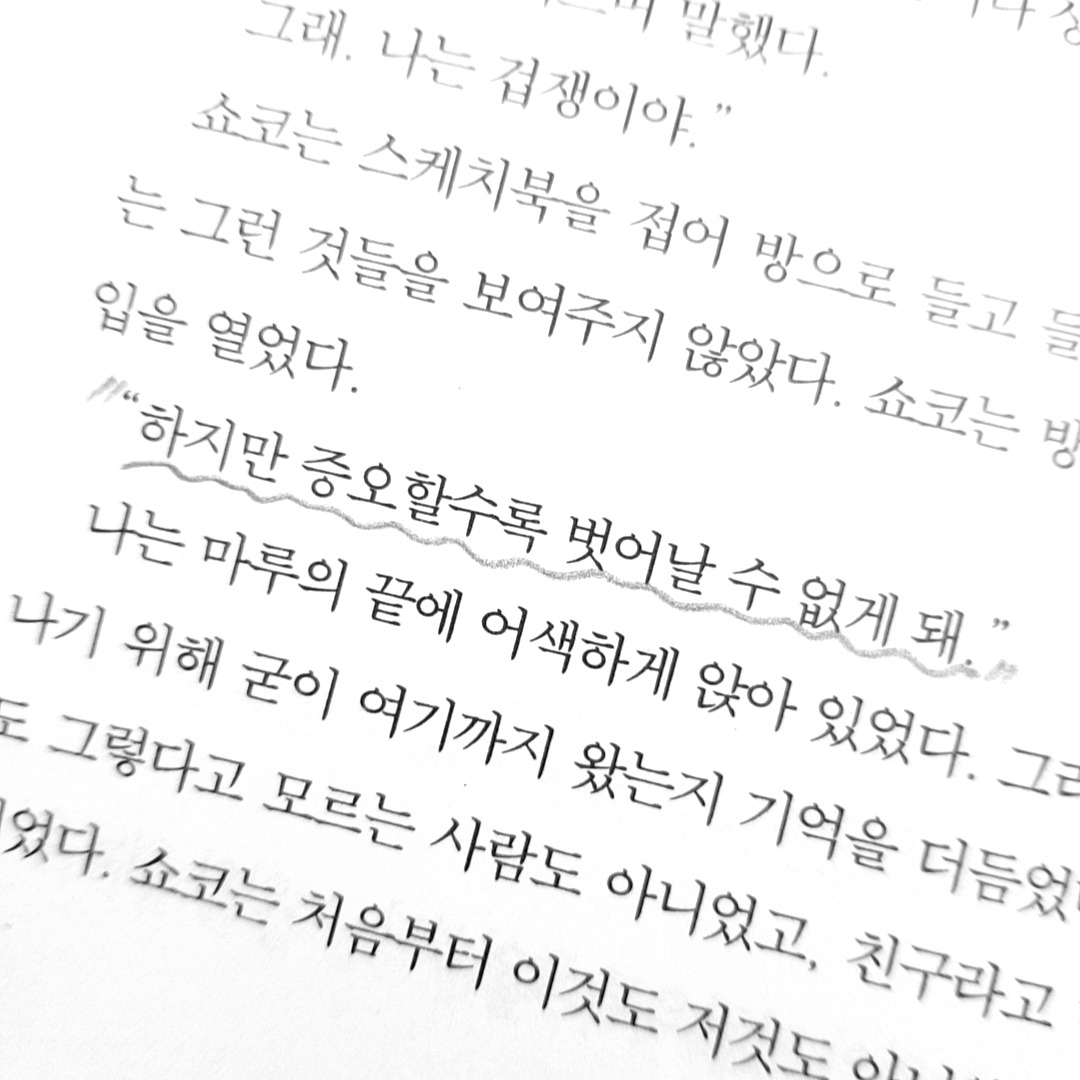 말했다.
그래. 나는 겁쟁이야.”
쇼코는 스케치북을 접어 방으로 들고
는 그런 것들을 보여주지 않았다. 쇼코는
입을 열었다.
“하지만 증오할수록 벗어날 수 없게 돼.”
나는 마루의 끝에 어색하게 앉아 있었다.
나기 위해 굳이 여기까지 왔는지 기억을 더듬었
도 그렇다고 모르는 사람도 아니었고, 친구라고
었다. 쇼코는 처음부터 이것도 저것도